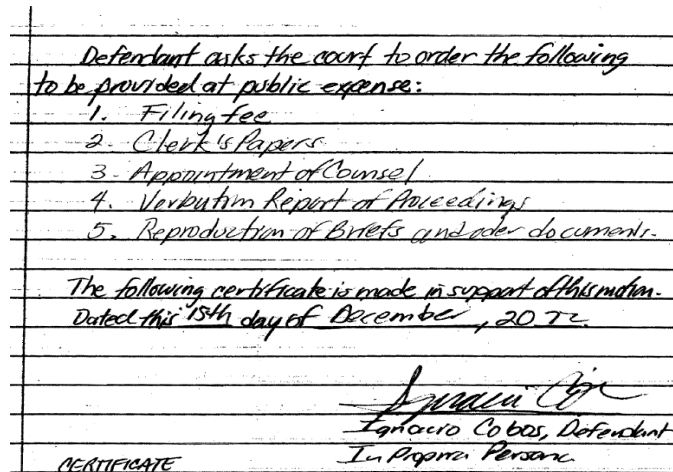 Defendant asks the court to order the following
to be provided at public expense:
1. Filing fee
2. Clerk's Papers
3. Appointment of Counsel
4. Verbatim Report of Proceedings
5. Reproduction of Briefs and oder documents.
The following certificate is made in support of this motion.
Dated this 15th day of December, 20
Ignacio Cobos, Defendant
In Propria Persona
CERTIFICATE